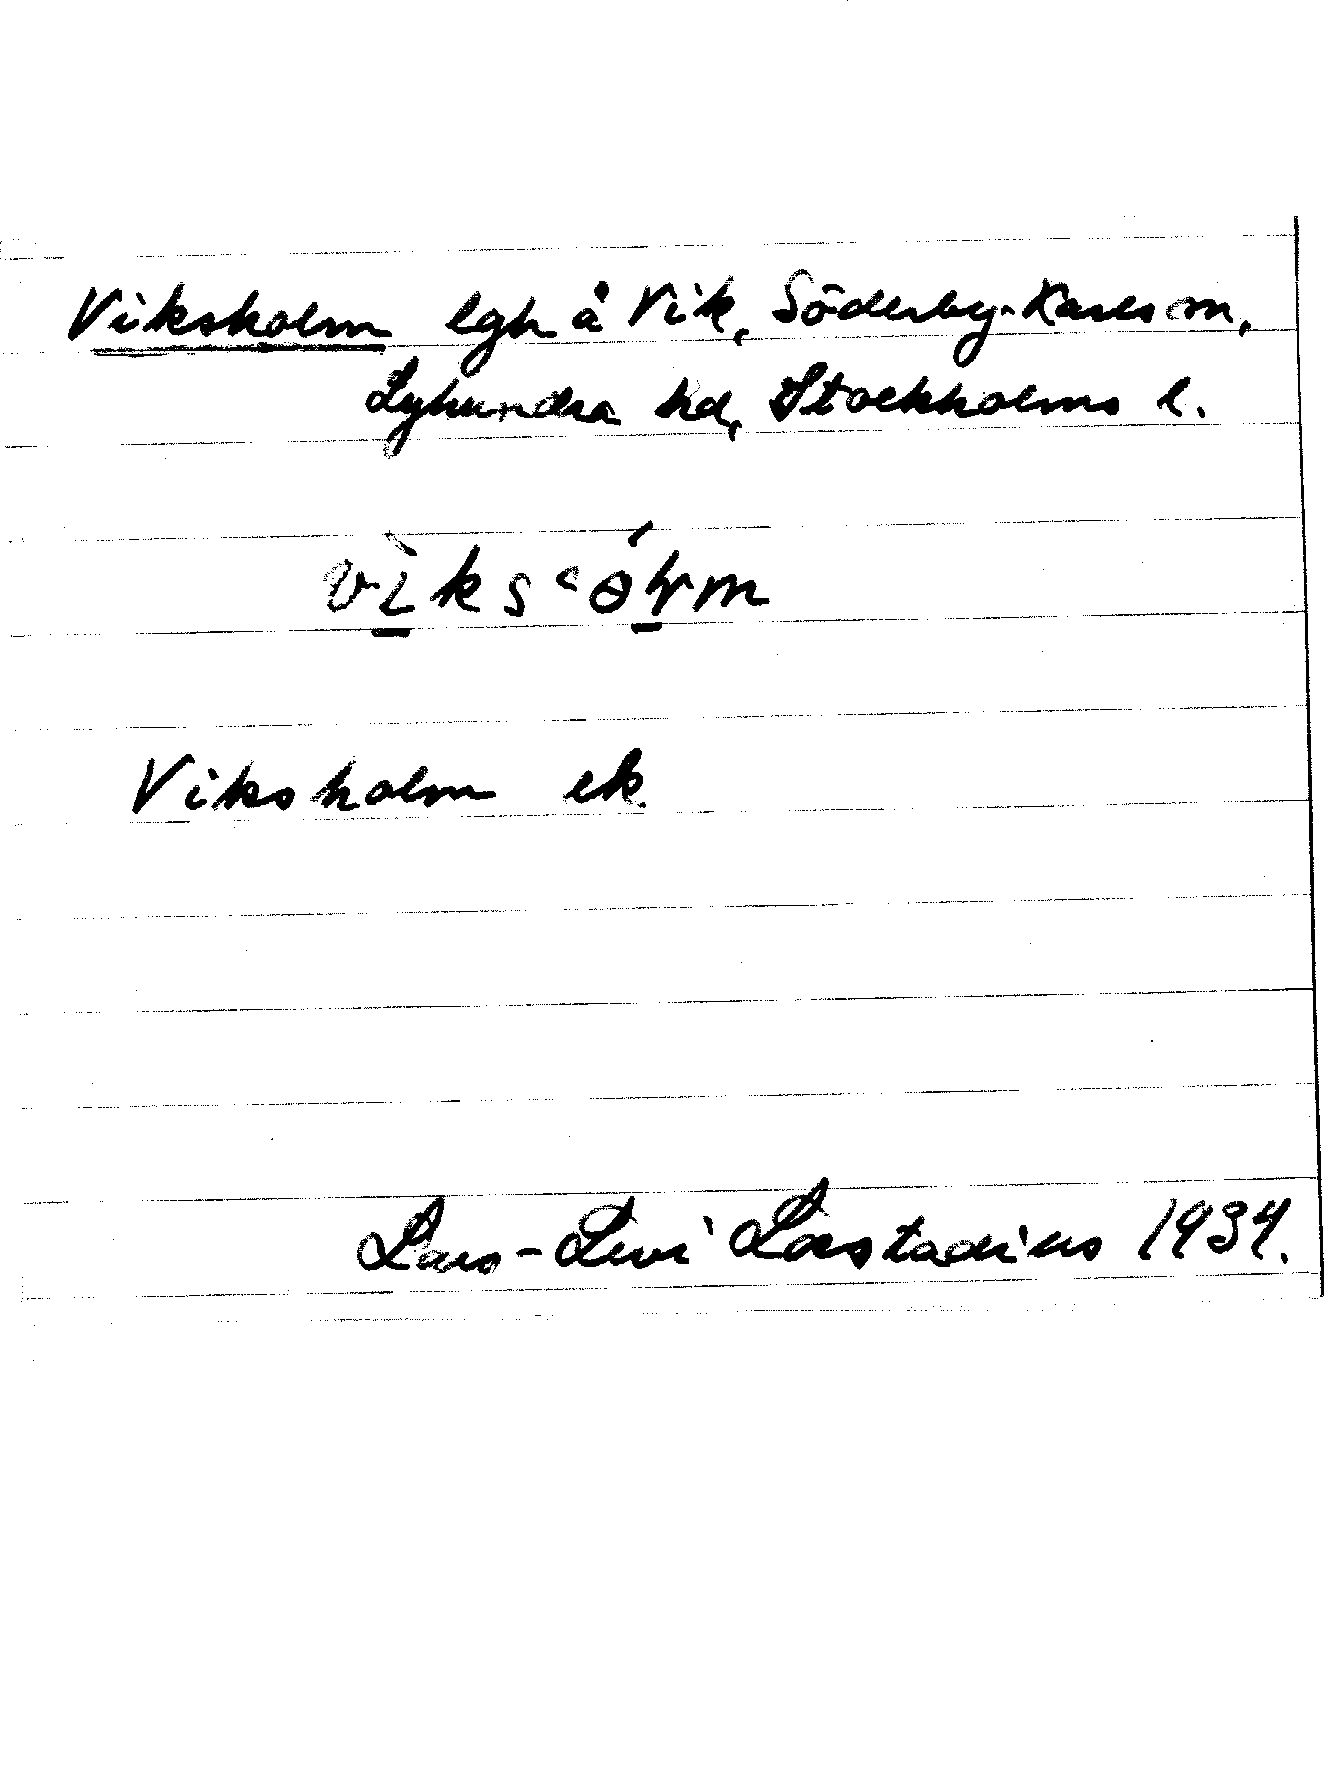 Viksholm lgh å Vik, Söderby-Karls sn,
Lyhundra hd, Stockholms l.
Viksholm ek.
Lars-Levi Læstadius 1934.